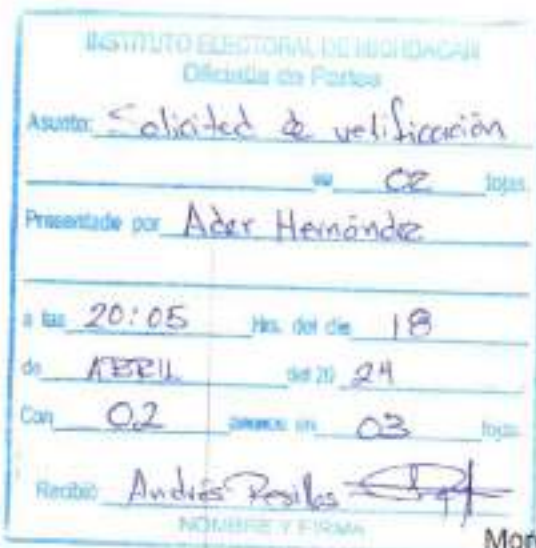 INSTITUTO ELECTORAL DE MICHOACÁN
Oficialía de Partes
Asunto: Solicitud de verificación
en 02 fojas.
Presentado por Ader Hernández
a las 20:05 Hrs. del día 18
de ABRIL del 20 24
Con 02 anexos en 03 fojas.
Recibió: Andrés
NOMBRE Y FIRMA
Mor